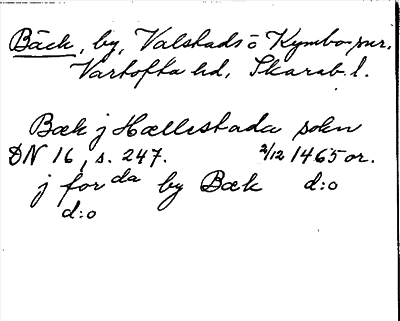 Bäck, by, Valstads o Kymbo snr.
Vartofta hd, Skarab. l.
Bæk j Hællestada sokn
DN 16, s. 247. 2/12 1465 or.
j for da by Bæk d:o
d:o